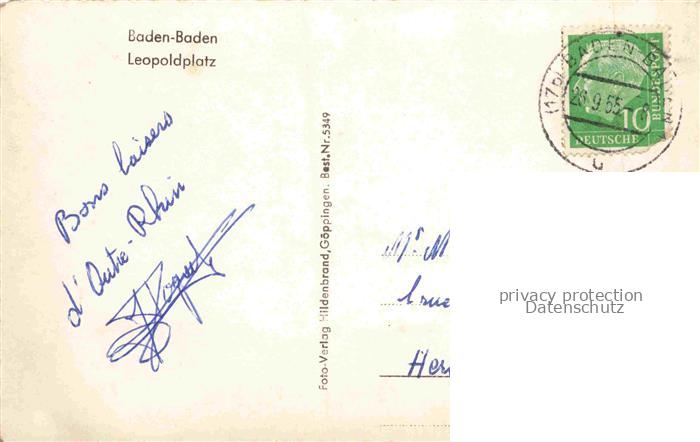 Baden-Baden
Leopoldplatz
Bons baisers
d'Outre-Rhin
Foto-Verlag Hildenbrand, Göppingen. Best. Nr. 5349
(17b) BADEN BADEN
26.9.55
10
DEUTSCHE
BUNDESPOST
Mr M
Her
privacy protection
Datenschutz